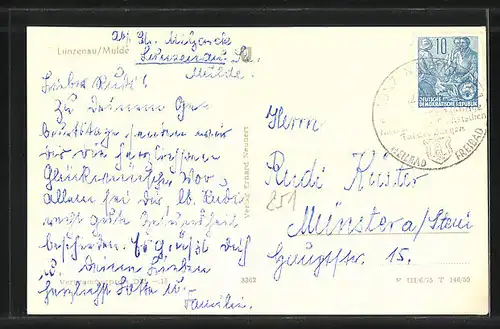 Lunzenau/Mulde
Abs.
Lunzenau Sa.
Mulde.
Lieber Rudi!
Zu Deinem Ge-
burtstage senden wir
dir die herzlichsten
Glückwünsche. Vor
allem sei dir lb. Rudi
recht gute Gesundheit
beschieden. Es grüßt dich
u. Deine Lieben
herzlichst Lotte u.
Familie.
Verlag Erhard Neubert
3363
10
DEUTSCHE
DEMOKRATISCHE REPUBLIK
HEILBAD
FREIBAD
Herrn
Rudi Küster
251
Münster a/Stein
Hauptstr. 15.
V 111/6/75 T 146/59